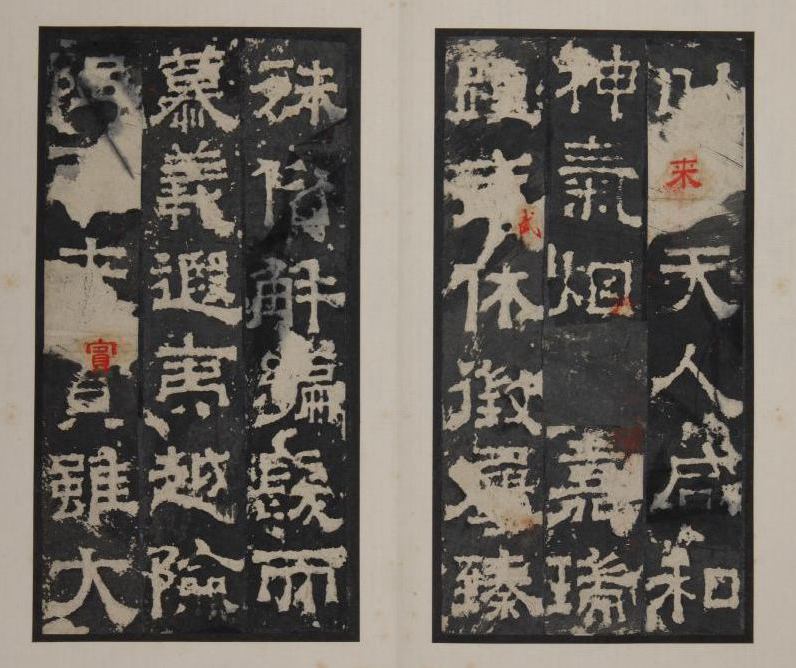 以来天人咸和
神氣烟嘉瑞
踵武休徵屢臻
武
殊俗解編髮而
慕義遐夷越險
阻來賓雖大
賓